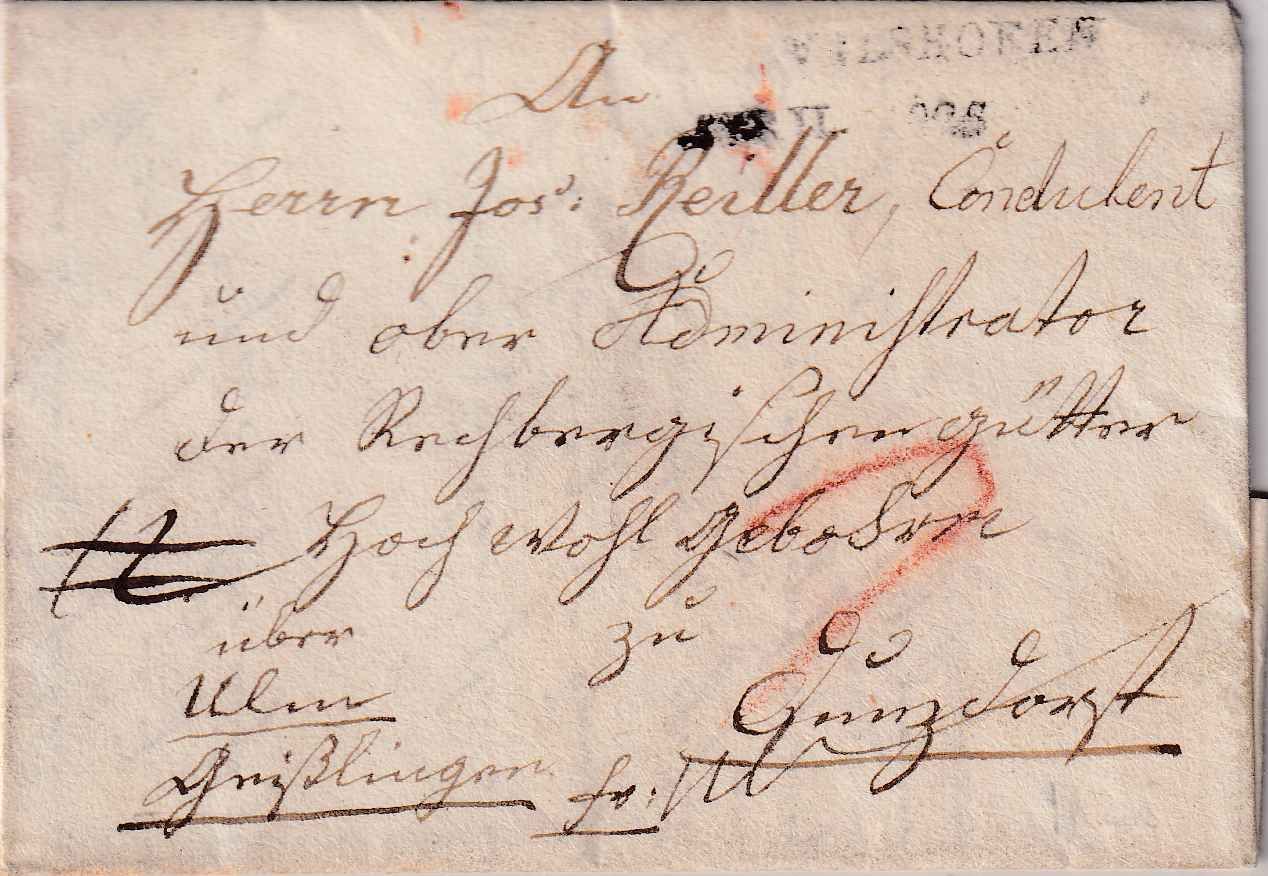 VILSHOFEN
An
Herrn Jos: Keiller, Condulent
und ober Administrator
der Rechbergischen gütter
Hoch wohl Gebohrn
12
über zu
Ulm
Geißlingen fr: